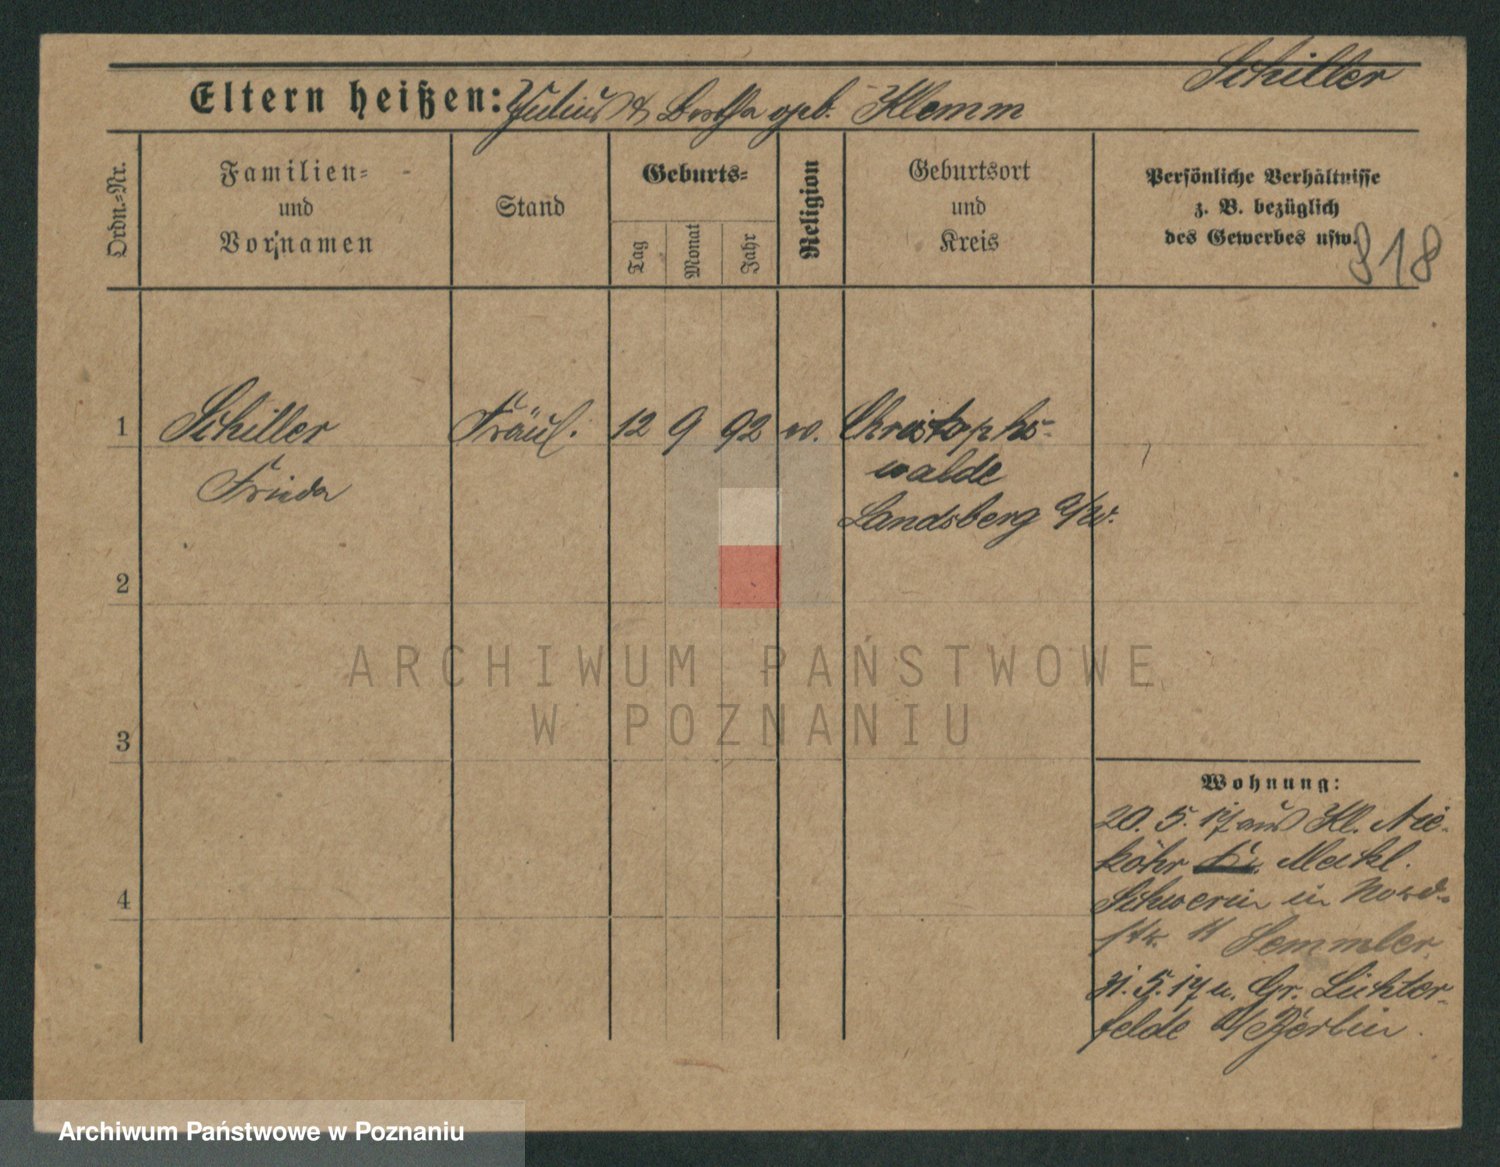 Schiller
Eltern heißen: Julius & Bertha geb. Klemm
Ordn.-Nr.
Familien-
und
Vornamen
Stand
Geburts-
Tag
Monat
Jahr
Religion
Geburtsort
und
Kreis
Persönliche Verhältnisse
z. B. bezüglich
des Gewerbes usw.
318
1 Schiller Fräul. 12 9 92 ev. Christophs-
Frieda walde
Landsberg a/W.
2
ARCHIWUM PAŃSTWOWE
W POZNANIU
3
Wohnung:
20. 5. 17 aus Kl. Nie-
köhr Meckl.
4
Schwerin in Nord-
str. 11 Semmler.
31. 5. 17 n. Gr. Lichter-
felde b/Berlin.
Archiwum Państwowe w Poznaniu